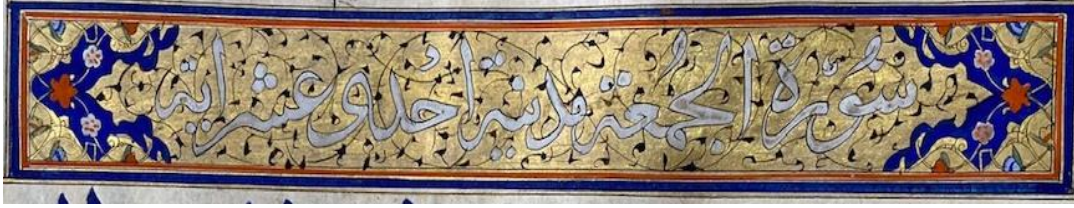 سُوْرَة الجُمُعَة مدنية احُدى وعشر اية